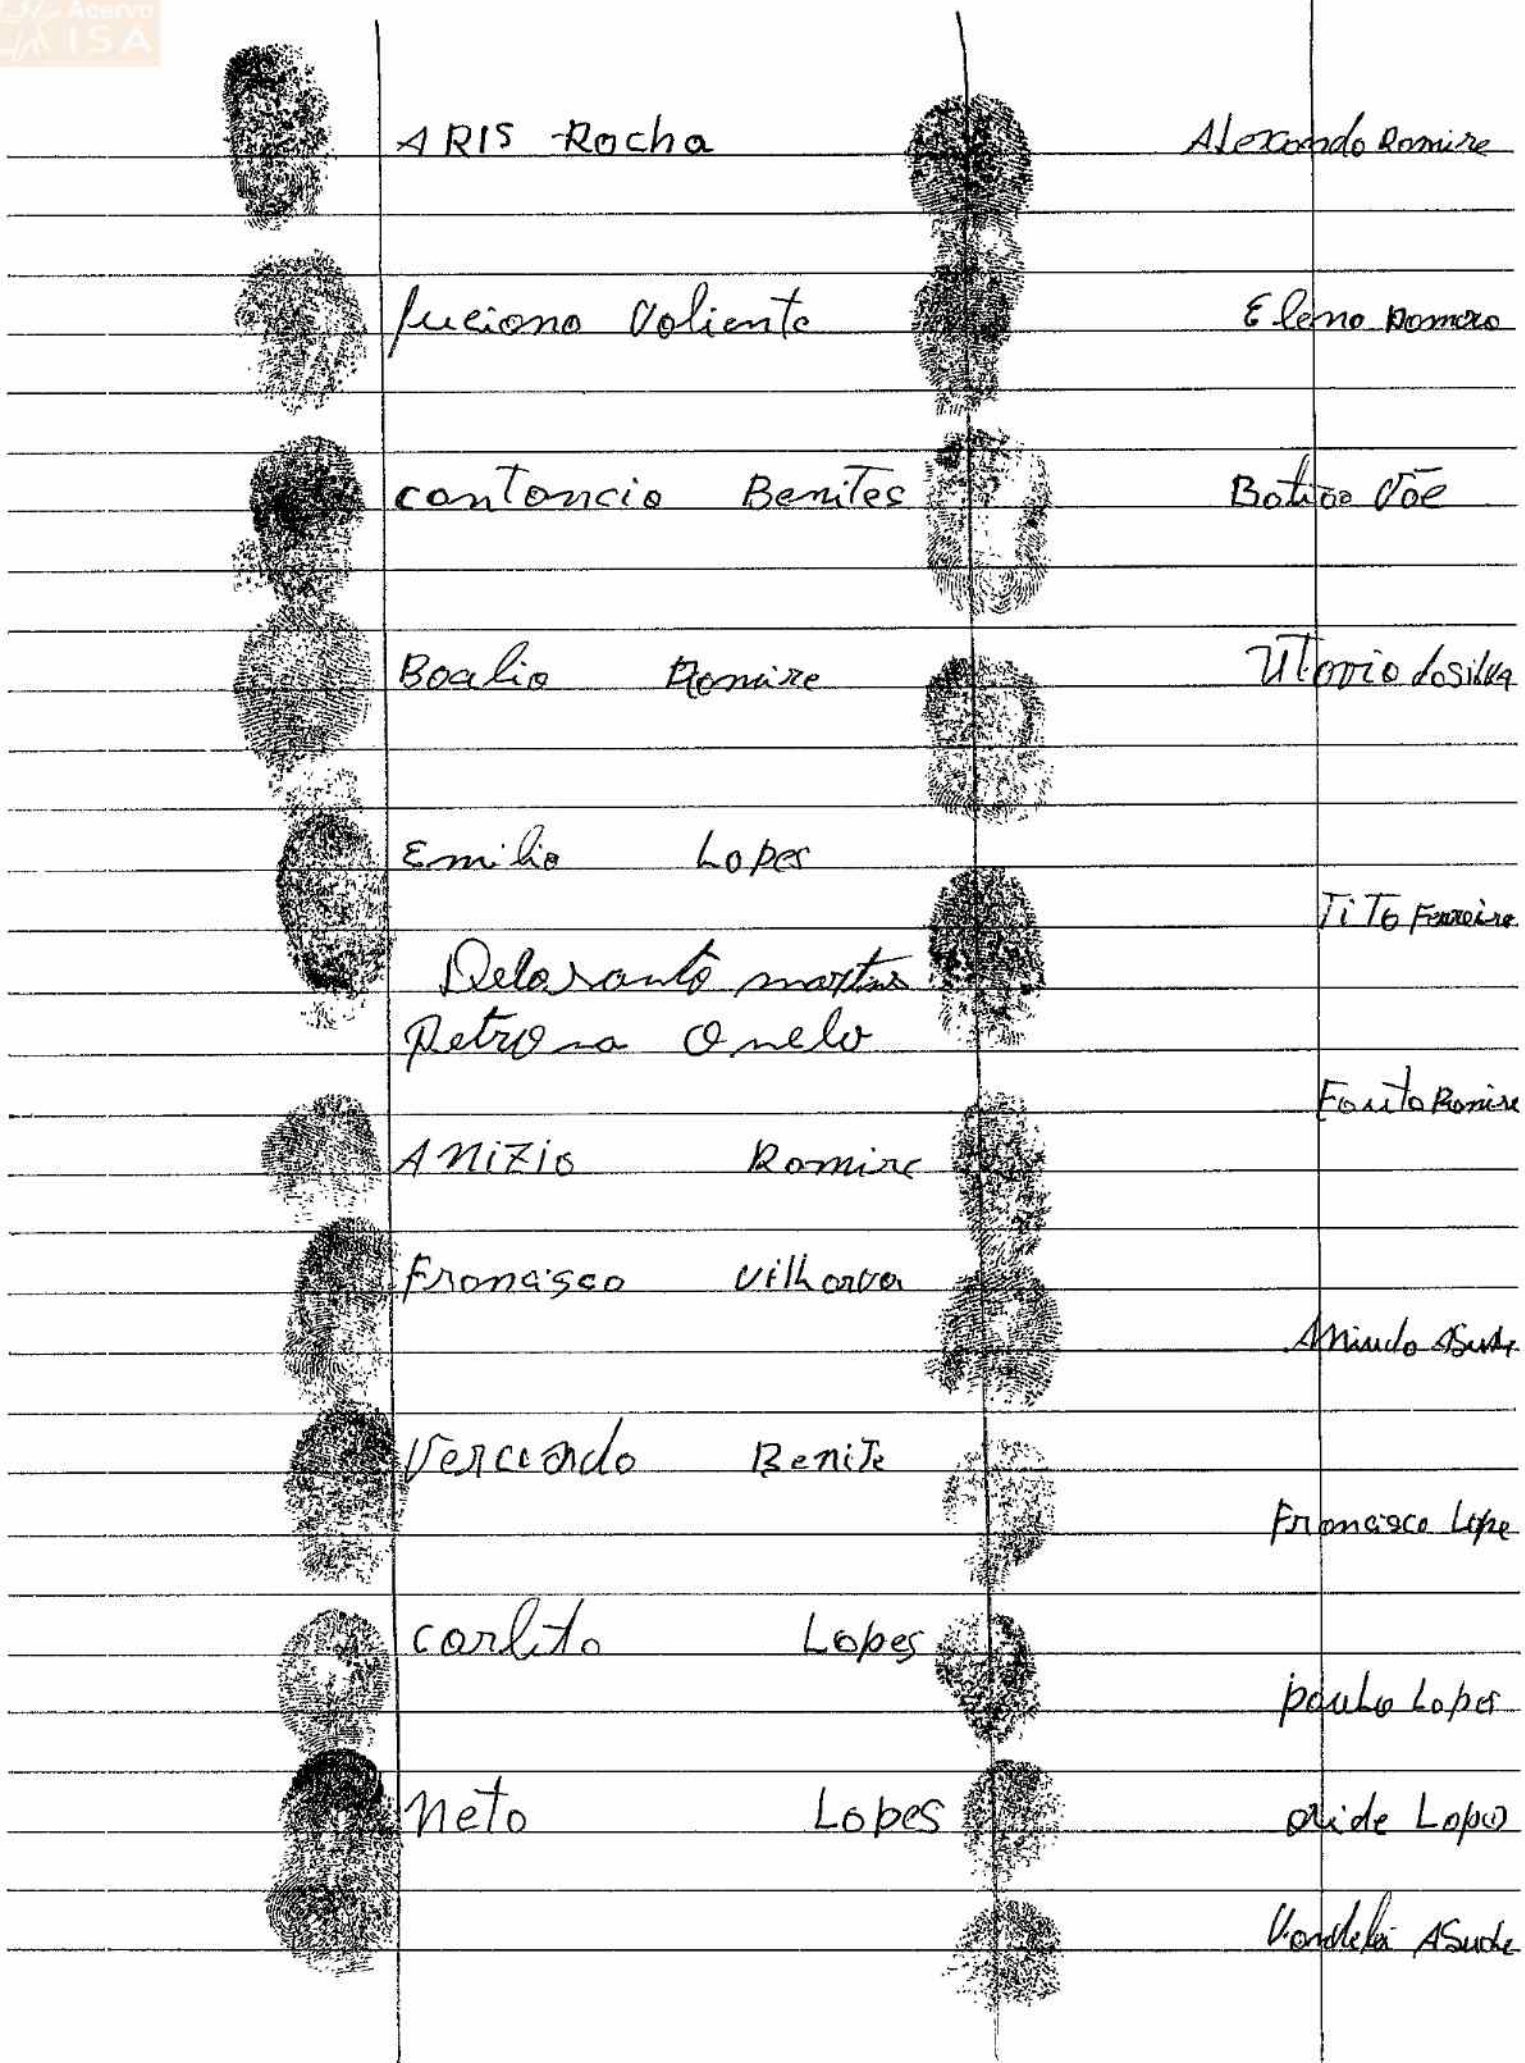 Acervo
ISA
ARIS Rocha
Luciano Valiente
contancio Benites
Boalio Romire
Emilio Lopes
Delosanto martins
Petrona Onelo
ANizio Romire
Francisco Vilharva
Vercando Benite
carlito Lopes
Neto Lopes
Alexando Romire
Eleno Romero
Batiao Vãe
Utovio da Silva
TiTo Ferreira
Fauito Romire
Francisco Lope
paulo Lopes
Lopes
Vandelei ASude